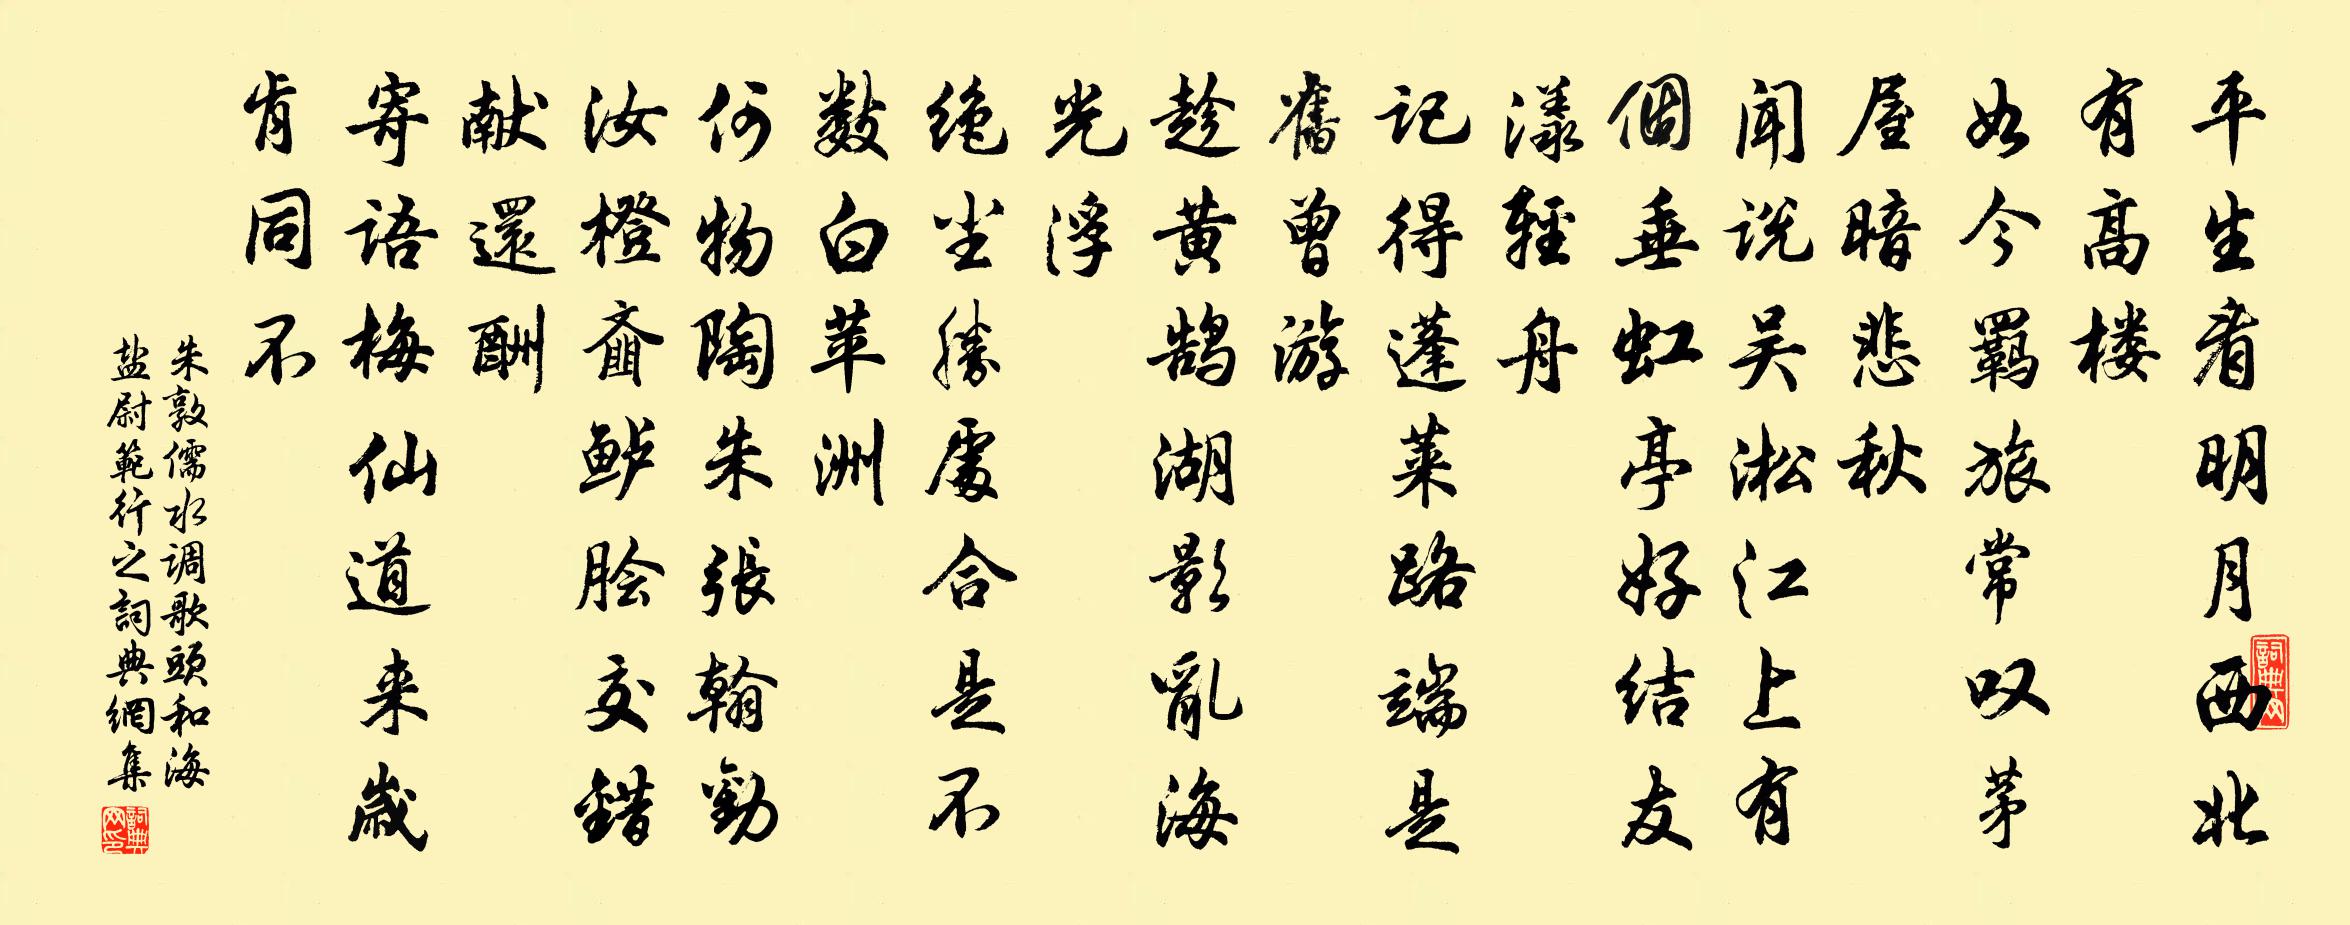 平生看明月西北
有高楼
如今羁旅常叹茅
屋暗悲秋
闻说吴淞江上有
個垂虹亭好结友
漾輕舟
记得蓬莱路端是
舊曾游
趁黄鹄湖影亂海
光浮
绝尘勝處合是不
数白苹洲
何物陶朱張翰勸
汝橙齑鲈脍交錯
献還酬
寄语梅仙道来歲
肯同不
朱敦儒水调歌頭和海
盐尉範行之詞典網集
詞典网
詞典网印